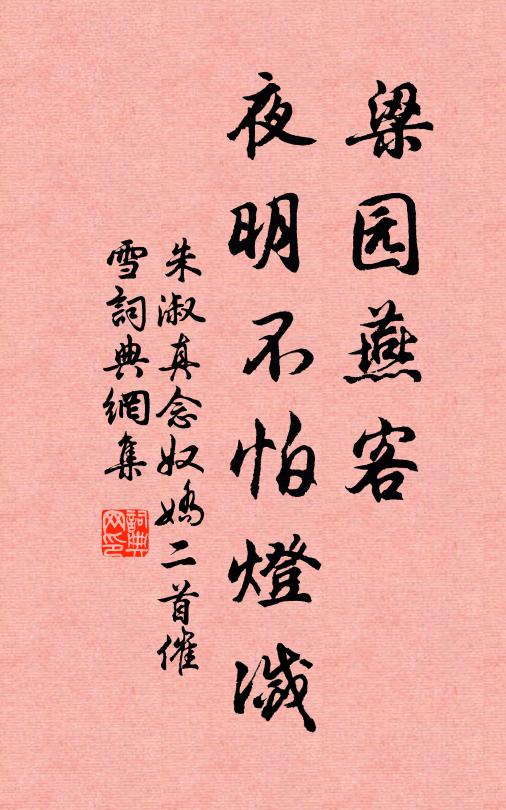 梁园燕客
夜明不怕燈滅
朱淑真念奴嬌二首催
雪詞典網集
詞典網印